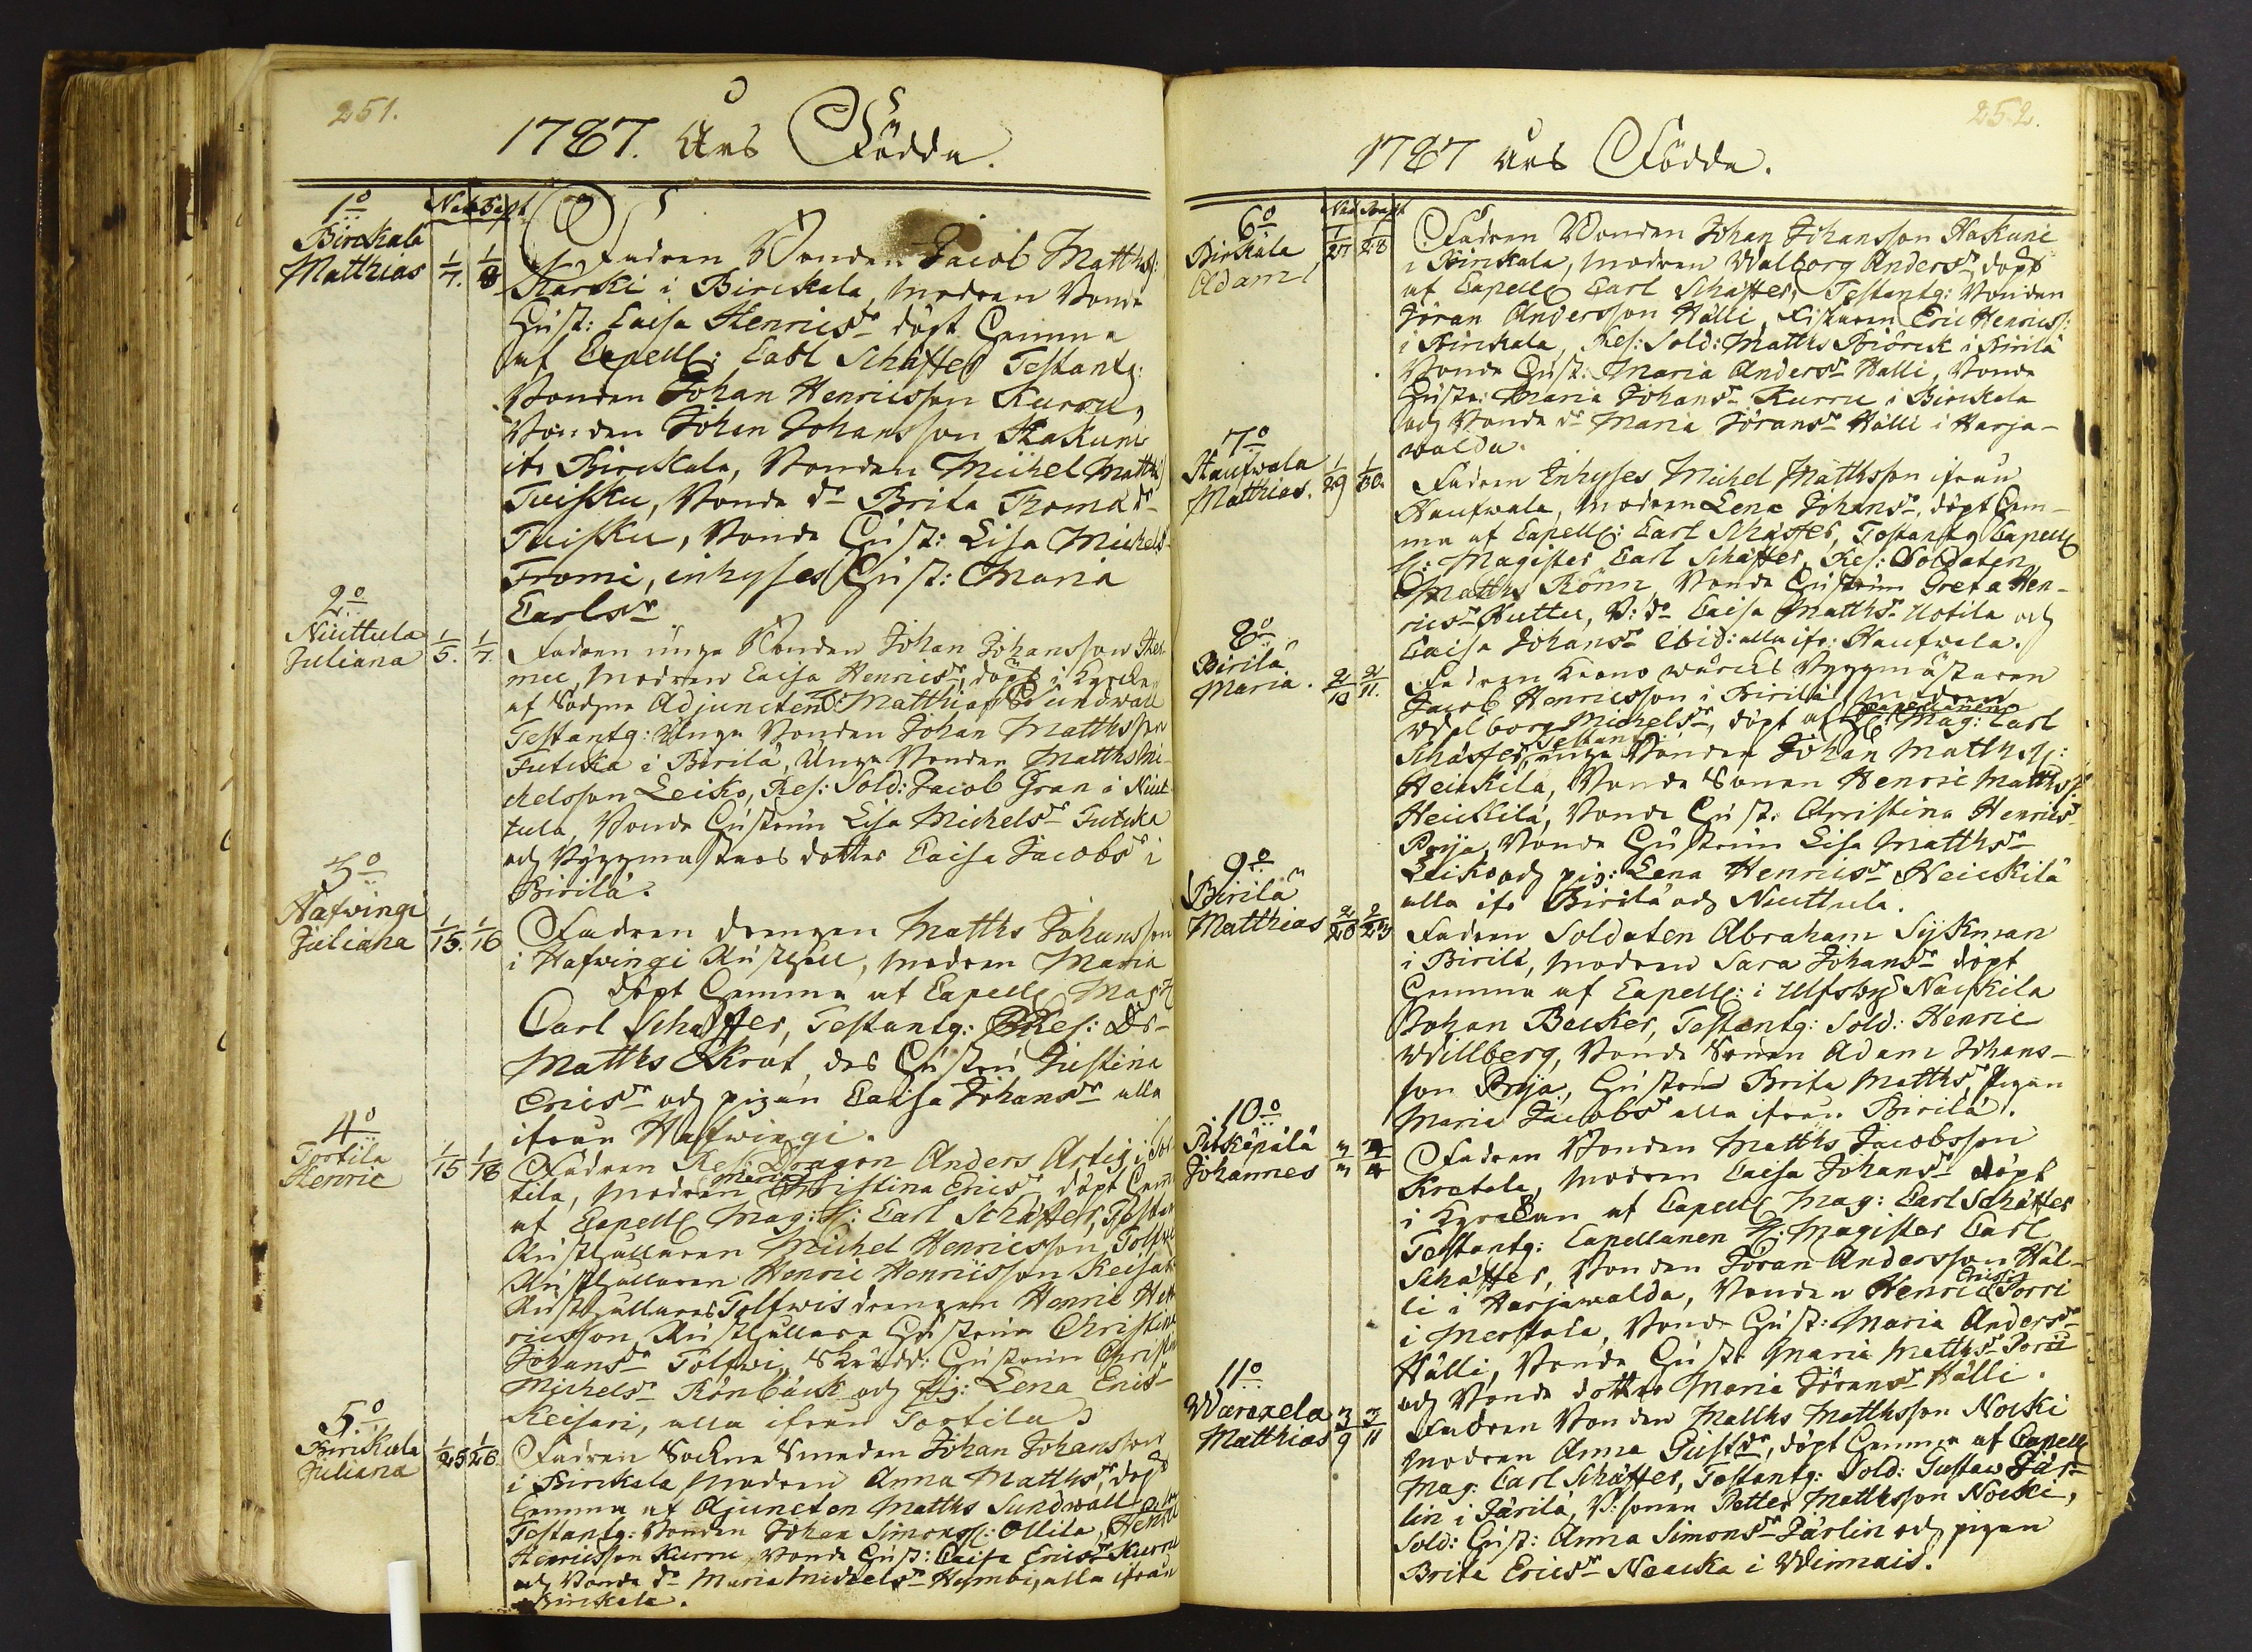 251.
1787. Års Födde.
1o
Nat. Bapt.
Birckala
Matthias
1/7. 1/8
Fadren Bonden Jacob Matths:
Karki i Birckala, modren Bonde
Hust: Caisa Henricsdr döpt hemma
af Capell: Carl Schäffer Testantq:
Bonden Johan Henricsson Kurru,
Bonden Johan Johansson Hakuni
ifr Birckala, Bonden Michel Matths
Tuisku, Bonde dr Brita Thomædr
Tuisku, Bonde Hust: Lisa Michelsdr
Fromi, inhyses Hust: Maria
Carlsdr
2o
Niuttula
Juliana
1/5. 1/7.
Fadren unge Bonden Johan Johansson
modren Caisa Henricsdr, döpt i Kyrckan
af Sockne Adjuncten H: Matthias Sundwall
Testantq: Unge Bonden Johan Matthsson
Futucka i Birilä, Unge Bonden Matths Mi-
chelsson Leiko, Res: Sold: Jacob Gran i Niut
tula, Bonde Hustrun Lisa Michelsdr Futucka
och Byggmästars dotter Caisa Jacobsdr i
Birilä.
3o
Hafwingi
Juliana
1/15. 1/16
Fadren drengen Matths Johansson
i Hafwingi Rusthåll, modren Maria
döpt hemma af Capell Mag: H
Carl Schäffer, Testantq: Res: Dr-
Matths Krat, des Hustru Justina
Ericsdr och pigan Caisa Johansdr alla
ifrån Hafwingi.
4o
Torttila
Henric
1/15 1/16
Fadren Res: Dragon Anders Artig i Tor
tila, modren Maria Christina Ericsdr, döpt hem
af Capell Mag: H: Carl Schäffer, Testan
Rusthållaren Michel Henricsson Tolfwe
Rusthållaren Henric Henricsson Keisari
Rusthållares Tolfwis drengen Henric Hen
ricsson, Rusthållare Hustrun Christina
Johansdr Tolfwi, Skrädd: Hustrun Christin
Michelsdr Rönbäck och Pig: Lena Ericsdr
Keisari, alla ifrån Torttila
5o
Birckala
Juliana
1/25 1/26.
Fadren Sockne Smeden Johan Johansson
i Birckala modren Anna Matthsdr, döpt
hemma af Ajuncten Matths Sundwall
Testantq: Bonden Johan Simonss: Ollila, Henric
Henricsson Kurru, Bonde Hust: Caisa Ericsdr Kurru
och Bonde dr Maria Michelsdr Hambi, alla ifrån
Birckala.
252.
1787 års Födde.
6o
Nat. Bapt
Birckala
Adam
1/27 1/28
Fadren Bonden Johan Johansson Hakuni
i Birckala, modren Walborg Andersdr, döpt
af Capell Carl Schäffer, Testantq: Bonden
Jöran Andersson Hälli, Fiskaren Eric Henricss:
i Birckala, Res: Sold: Matths Biörck i Birilä
Bonde Hust: Maria Andersdr Hälli, Bonde
Hustr: Maria Johansdr Kurru i Birckala
och Bonde dr Maria Jöransdr Hälli i Harja-
walda.
7o
Haufwala
Matthias.
1/29 1/30.
Fadren Inhyses Michel Matthsson ifrån
Haufwala, modren Lena Johansdr, döpt hem-
ma af Capell: Carl Schäffer, Testantq Capell
H: Magister Carl Schäffer, Res: Soldaten
Matths Rönn, Bonde Hustrun Greta Hen-
ricsdr Huttu, B: dr Caisa Matthsdr Uotila och
Caisa Johansdr ibid: alla ifr: Haufwala.
8o
Birilä
Maria.
2/10 2/11.
Fadren Krono wärcks Byggmästaren
Jacob Henricsson i Birilä, modren
Walborg Michelsdr, döpt af Capellanen H: Mag: Carl
Schäffer, Testant unge Bonden Johan Matthss:
Heickilä, Bonde Sonen Henric Matthss:
Heickilä, Bonde Hust: Christina Henricsdr
Prija, Bonde Hustrun Lisa Matthsdr
Leiko och pig: Lena Henricsdr Heickilä
alla ifr Birilä och Niuttula.
9o
Birilä
Matthias
2/28 2/29
Fadren Soldaten Abraham Sijkman
i Birilä, modren Sara Johansdr döpt
hemma af Capell: i Ulfsby Nackila
Johan Becker, Testantq: Sold: Henric
Willberg, Bonde Sonen Adam Johans-
son Prija, Hustrun Brita Matthsdr, Pigan
Maria Jacobsdr alla ifrån Birilä.
10o
Pitkäpälä
Johannes
3/3 3/4
Fadren Bonden Matths Jacobsson
Kratala, modren Caisa Johansdr döpt
i Kyrckan af Capell Mag: Carl Schäffer
Testantq: Capellanen H: Magister Carl
Schäffer, Bonden Jöran Andersson Häl-
li i Harjawalda, Bonden Henric Ericss: Torri
i Merstola, Bonde Hust: Maria Andersdr
Hälli, Bonde Hustr Maria Matthsdr Torri
och Bonde dotter Maria Jöransdr Hälli.
11o
Warexela
Matthias
3/9 3/11
Fadren Bonden Matths Matthsson Nocki
modren Anna Gustdr, döpt hemma af Capell
Mag: Carl Schäffer, Testantq: Sold: Gustaw Jär-
lin i Järilä, B: sonen Petter Matthsson Nocki,
Sold: Hust: Anna Simonsdr Järlin och pigan
Brita Ericsdr Naucka i Winnais.